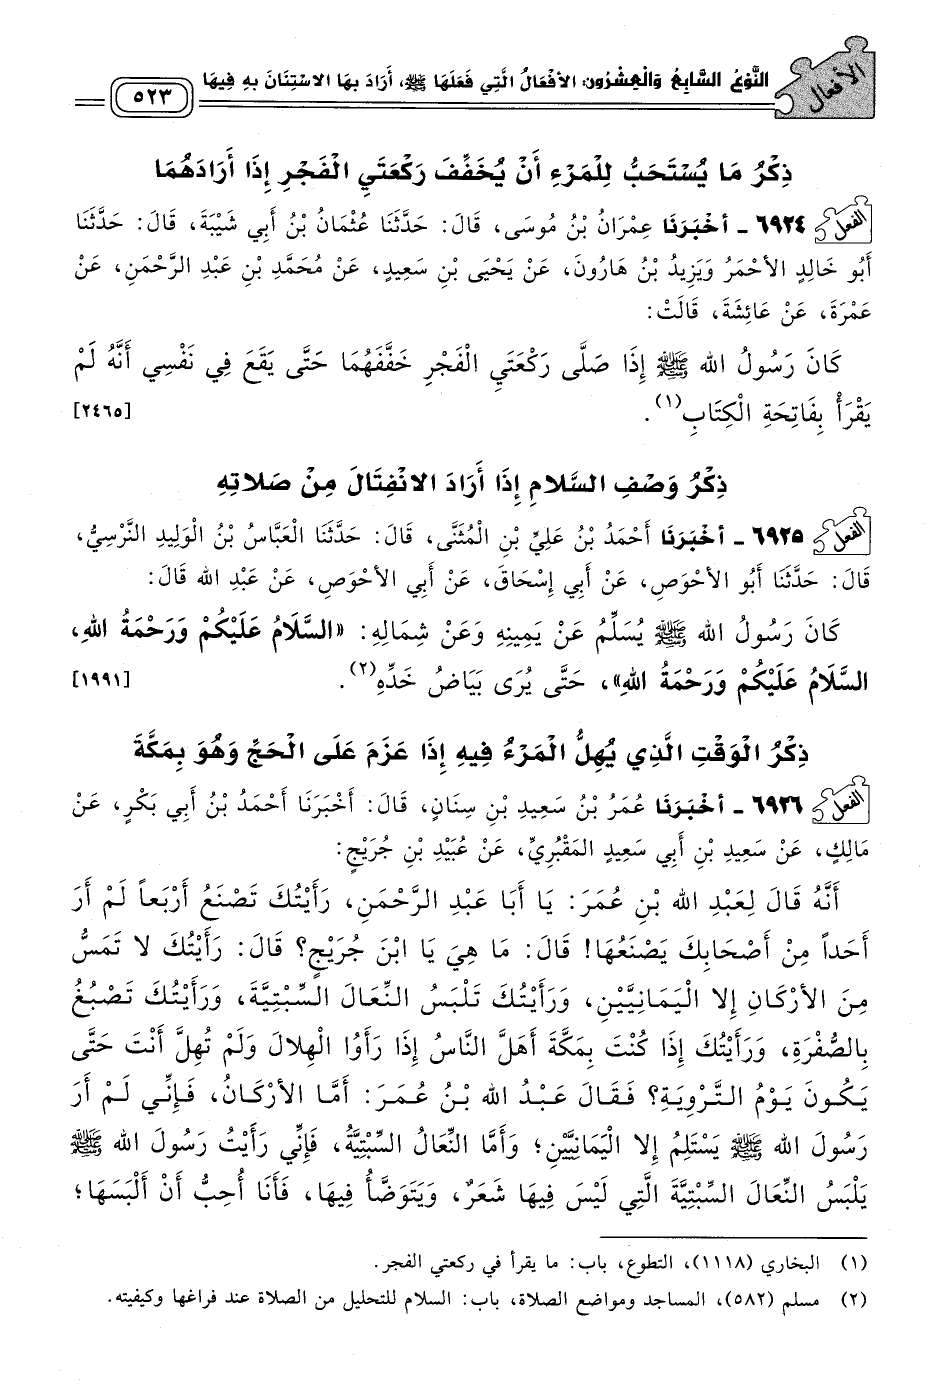 الأفعال
النَّوْعُ السَّابِعُ وَالْعِشْرُون: الأَفْعَالُ الَّتِي فَعَلَهَا ﷺ، أَرَادَ بِهَا الاسْتِنَانَ بِهِ فِيهَا
٥٢٣
ذِكْرُ مَا يُسْتَحَبُّ لِلْمَرْءِ أَنْ يُخَفِّفَ رَكْعَتَيِ الْفَجْرِ إِذَا أَرَادَهُمَا
الفعل ٦٩٢٤ ـ أَخْبَرَنَا عِمْرَانُ بْنُ مُوسَى، قَالَ: حَدَّثَنَا عُثْمَانُ بْنُ أَبِي شَيْبَةَ، قَالَ: حَدَّثَنَا
أَبُو خَالِدٍ الأَحْمَرُ وَيَزِيدُ بْنُ هَارُونَ، عَنْ يَحْيَى بْنِ سَعِيدٍ، عَنْ مُحَمَّدِ بْنِ عَبْدِ الرَّحْمَنِ، عَنْ
عَمْرَةَ، عَنْ عَائِشَةَ، قَالَتْ:
كَانَ رَسُولُ الله ﷺ إِذَا صَلَّى رَكْعَتَيِ الْفَجْرِ خَفَّفَهُمَا حَتَّى يَقَعَ فِي نَفْسِي أَنَّهُ لَمْ
يَقْرَأْ بِفَاتِحَةِ الْكِتَابِ(١). [٢٤٦٥]
ذِكْرُ وَصْفِ السَّلامِ إِذَا أَرَادَ الانْفِتَالَ مِنْ صَلاتِهِ
الفعل ٦٩٢٥ ـ أَخْبَرَنَا أَحْمَدُ بْنُ عَلِيِّ بْنِ الْمُثَنَّى، قَالَ: حَدَّثَنَا الْعَبَّاسُ بْنُ الْوَلِيدِ النَّرْسِيُّ،
قَالَ: حَدَّثَنَا أَبُو الأَحْوَصِ، عَنْ أَبِي إِسْحَاقَ، عَنْ أَبِي الأَحْوَصِ، عَنْ عَبْدِ الله قَالَ:
كَانَ رَسُولُ الله ﷺ يُسَلِّمُ عَنْ يَمِينِهِ وَعَنْ شِمَالِهِ: «السَّلَامُ عَلَيْكُمْ وَرَحْمَةُ اللهِ،
السَّلَامُ عَلَيْكُمْ وَرَحْمَةُ اللهِ»، حَتَّى يُرَى بَيَاضُ خَدِّهِ(٢). [١٩٩١]
ذِكْرُ الْوَقْتِ الَّذِي يُهِلُّ الْمَرْءُ فِيهِ إِذَا عَزَمَ عَلَى الْحَجِّ وَهُوَ بِمَكَّةَ
الفعل ٦٩٢٦ ـ أَخْبَرَنَا عُمَرُ بْنُ سَعِيدِ بْنِ سِنَانٍ، قَالَ: أَخْبَرَنَا أَحْمَدُ بْنُ أَبِي بَكْرٍ، عَنْ
مَالِكٍ، عَنْ سَعِيدِ بْنِ أَبِي سَعِيدٍ المَقْبُرِيِّ، عَنْ عُبَيْدِ بْنِ جُرَيْجٍ:
أَنَّهُ قَالَ لِعَبْدِ الله بْنِ عُمَرَ: يَا أَبَا عَبْدِ الرَّحْمَنِ، رَأَيْتُكَ تَصْنَعُ أَرْبَعاً لَمْ أَرَ
أَحَداً مِنْ أَصْحَابِكَ يَصْنَعُهَا! قَالَ: مَا هِيَ يَا ابْنَ جُرَيْجٍ؟ قَالَ: رَأَيْتُكَ لا تَمَسُّ
مِنَ الأَرْكَانِ إِلا الْيَمَانِيَّيْنِ، وَرَأَيْتُكَ تَلْبَسُ النِّعَالَ السِّبْتِيَّةَ، وَرَأَيْتُكَ تَصْبُغُ
بِالصُّفْرَةِ، وَرَأَيْتُكَ إِذَا كُنْتَ بِمَكَّةَ أَهَلَّ النَّاسُ إِذَا رَأَوُا الْهِلالَ وَلَمْ تُهِلَّ أَنْتَ حَتَّى
يَكُونَ يَوْمُ التَّرْوِيَةِ؟ فَقَالَ عَبْدُ الله بْنُ عُمَرَ: أَمَّا الأَرْكَانُ، فَإِنِّي لَمْ أَرَ
رَسُولَ الله ﷺ يَسْتَلِمُ إِلا الْيَمَانِيَّيْنِ؛ وَأَمَّا النِّعَالُ السِّبْتِيَّةُ، فَإِنِّي رَأَيْتُ رَسُولَ الله ﷺ
يَلْبَسُ النِّعَالَ السِّبْتِيَّةَ الَّتِي لَيْسَ فِيهَا شَعَرٌ، وَيَتَوَضَّأُ فِيهَا، فَأَنَا أُحِبُّ أَنْ أَلْبَسَهَا؛
(١) البخاري (١١١٨)، التطوع، باب: ما يقرأ في ركعتي الفجر.
(٢) مسلم (٥٨٢)، المساجد ومواضع الصلاة، باب: السلام للتحليل من الصلاة عند فراغها وكيفيته.